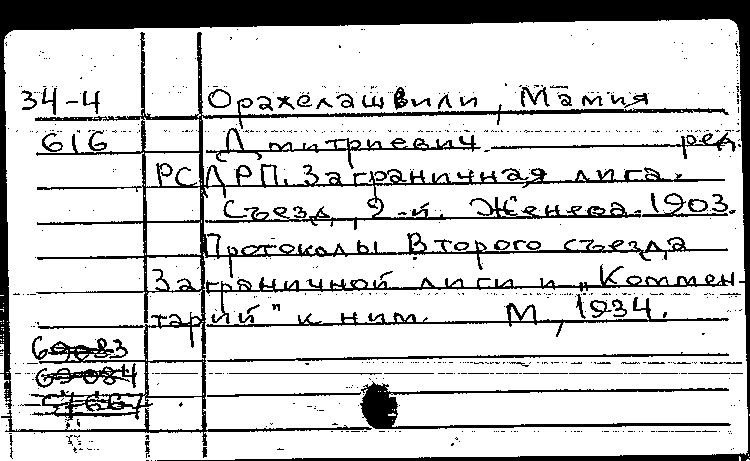 34-4 Орахелашвили, Мамия
616 Дмитриевич ред.
РСДРП. Заграничная лига.
Съезд, 2-й. Женева. 1903.
Протоколы Второго съезда
Заграничной лиги и „Коммен-
тарий" к ним. М, 1934.
69083
69084
57667